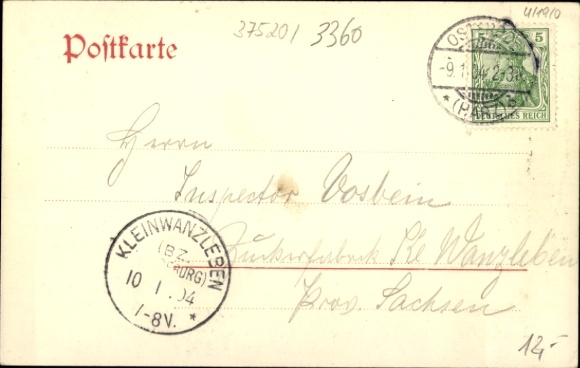 Postkarte
375201 3360
4/19/0
5 5
-9.1.04 2-3N
* (HARZ) *
DEUTSCHES REICH
Herrn
Inspector Vosbein
Zuckerfabrik Kl. Wanzleben
Prov. Sachsen
KLEINWANZLEBEN
(BZ.
BURG)
10 1 .04
1-8V. *
12,-